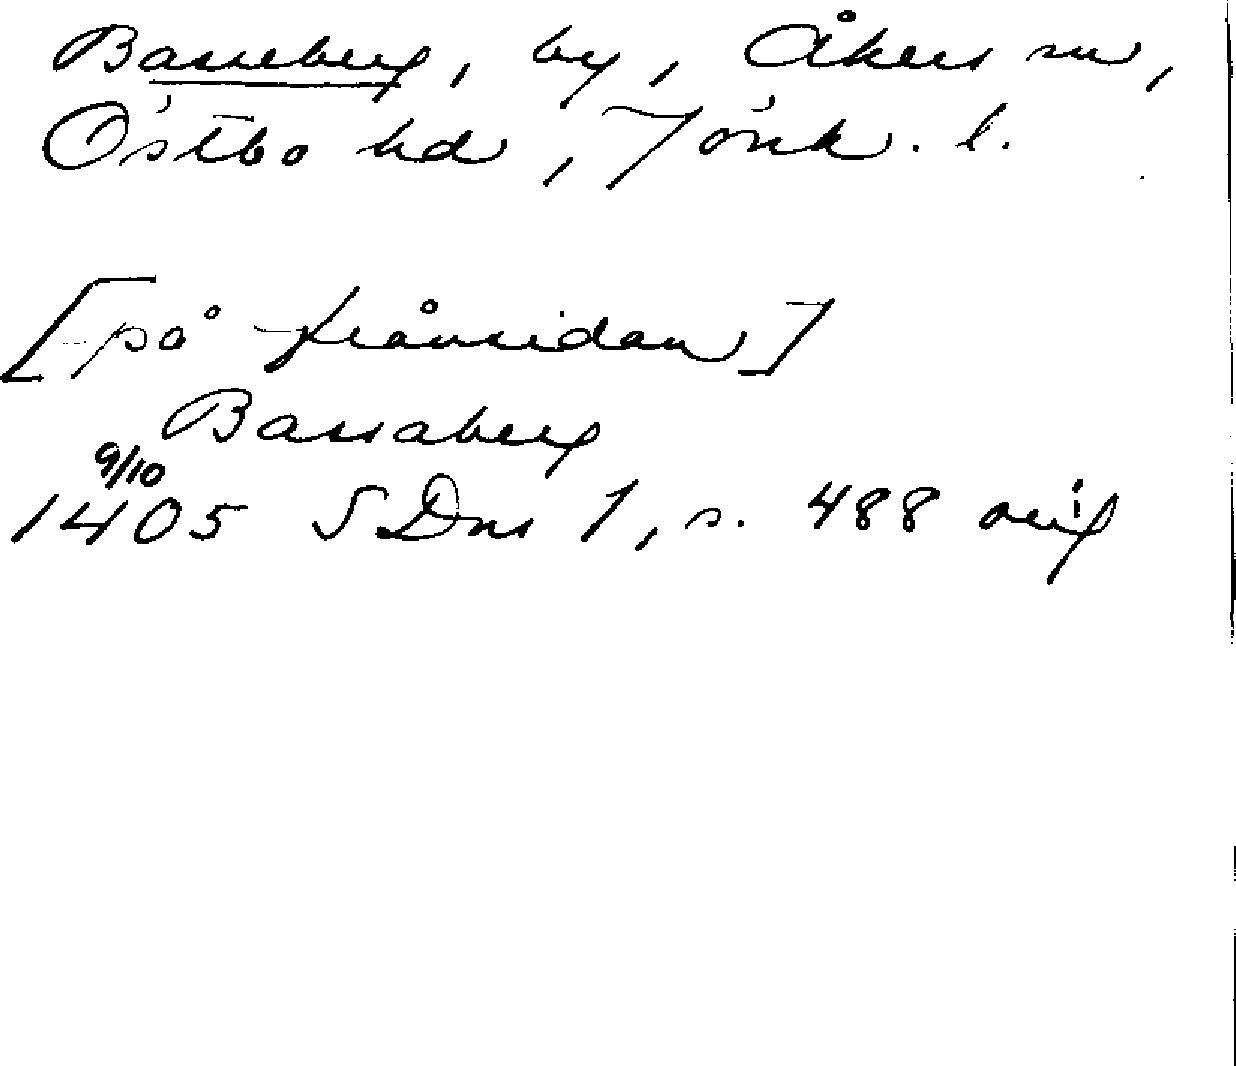 Basseberg, by, Åkers sn,
Östbo hd, Jönk. l.
[på frånsidan]
Bassaberg
9/10
1405 SDns 1, s. 488 orig